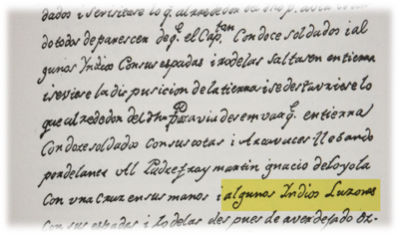 dados i se visitase lo q. al rededor
do todos de parescer de q. el Cap.tan Con doce soldados i al
gunos Indios Con sus espadas i rodelas saltasen en tierra
i se viese la disposicion de la tierra i se descubriese lo
que al rededor del dho Pto avia desembarq. en tierra
Con doze soldados con sus cotas i Arcavuces llebando
por delante All Padre fray martin ignacio de Loyola
Con vna Cruz en sus manos i algunos Indios Luzones
Con sus espadas i rodelas despues de aver dejado or-